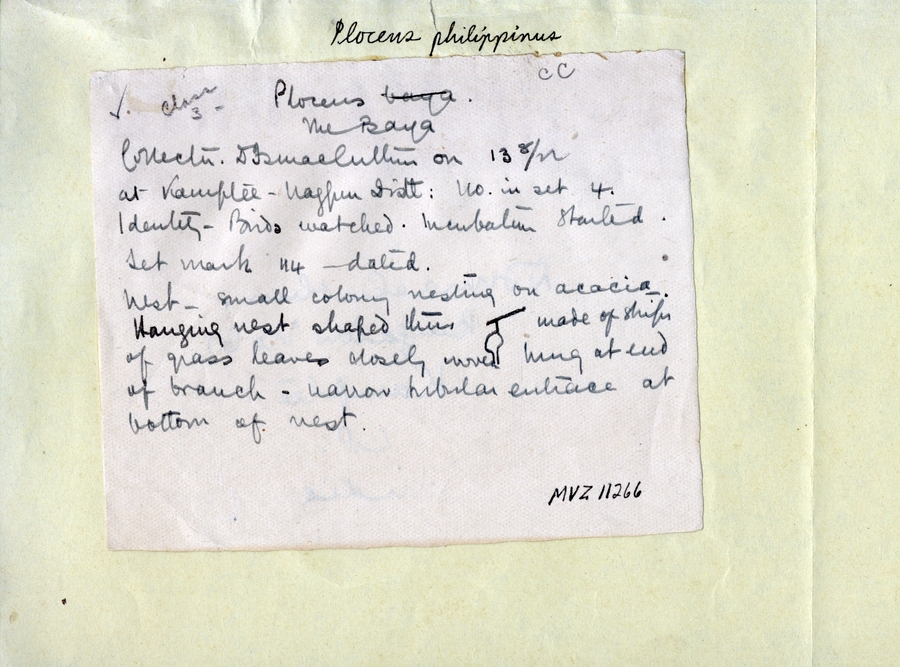 Ploceus philippinus
CC
√. Class 3 - Ploceus baya.
The Baya
Collectn. on 13 8/
at Kamptee - Nagpur Distt: No. in set 4.
Identity - Birds watched. Incubation Started.
Set mark 114 - dated.
Nest - small colony nesting on acacia.
Hanging nest shaped thus made of strips
of grass leaves closely woven hung at end
of branch - narrow tubular entrace at
bottom of nest.
MVZ 11266